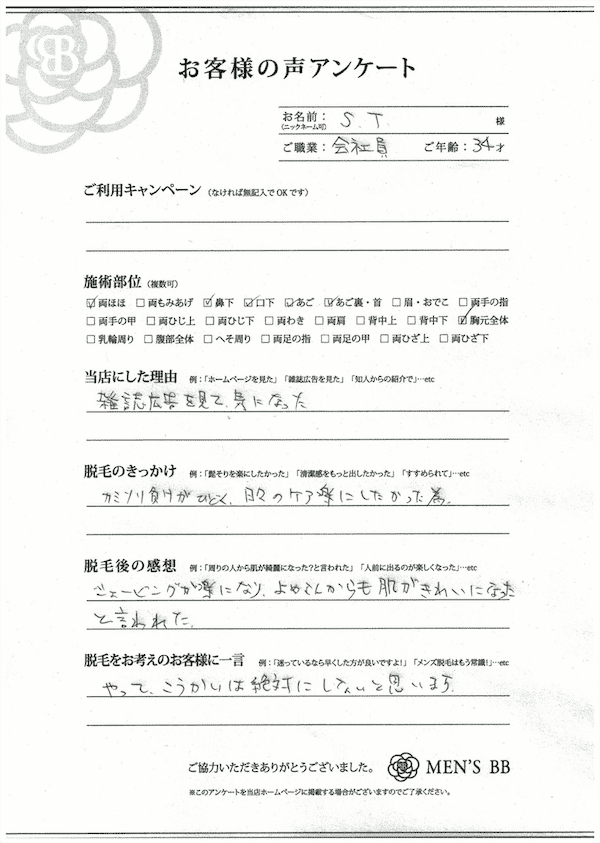 BB
お客様の声アンケート
お名前： S.T. 様
(ニックネーム可)
ご職業： 会社員 ご年齢： 34才
ご利用キャンペーン（なければ無記入でOKです）
施術部位（複数可）
☑両ほほ □両もみあげ ☑鼻下 ☑口下 ☑あご ☑あご裏・首 □眉・おでこ □両手の指
□両手の甲 □両ひじ上 □両ひじ下 □両わき □両肩 □背中上 □背中下 ☑胸元全体
□乳輪周り □腹部全体 □へそ周り □両足の指 □両足の甲 □両ひざ上 □両ひざ下
当店にした理由 例：「ホームページを見た」「雑誌広告を見た」「知人からの紹介で」…etc
雑誌広告を見て、気になった
脱毛のきっかけ 例：「髭そりを楽にしたかった」「清潔感をもっと出したかった」「すすめられて」…etc
カミソリ負けがひどく、日々のケア楽にしたかった為。
脱毛後の感想 例：「周りの人から肌が綺麗になった？と言われた」「人前に出るのが楽しくなった」…etc
シェービングが楽になり、よめさんからも肌がきれいになった
と言われた。
脱毛をお考えのお客様に一言 例：「迷っているなら早くした方が良いですよ！」「メンズ脱毛はもう常識！」…etc
やって、こうかいは絶対にしないと思います。
ご協力いただきありがとうございました。 MEN'S BB
※このアンケートを当店ホームページに掲載する場合がございますのでご了承ください。